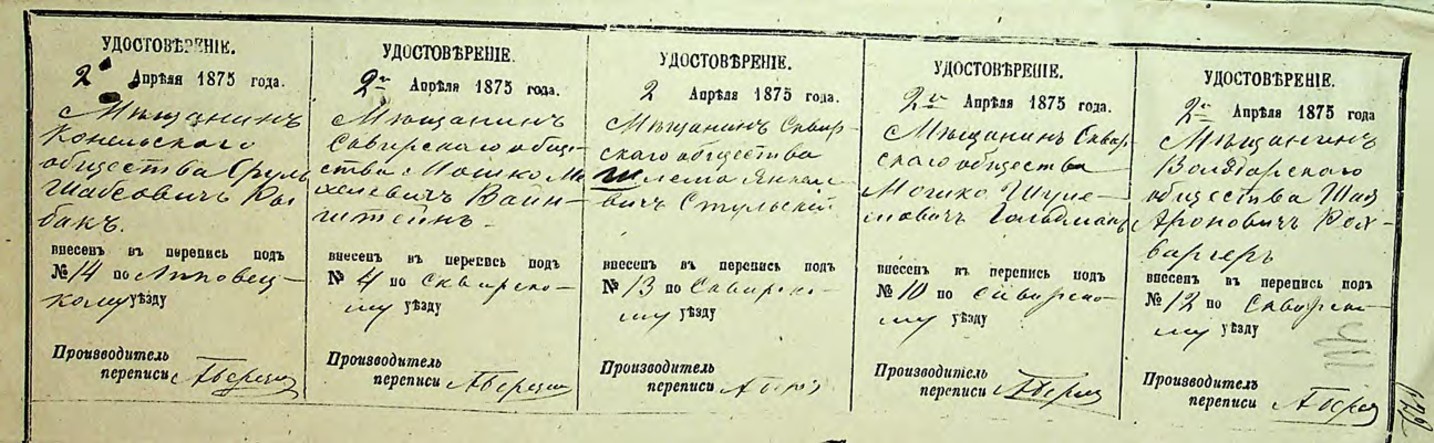 УДОСТОВѢРЕНІЕ.
2 Апрѣля 1875 года.
Мѣщанинъ
Конельскаго
общества Сруль
Шабсовичъ Ры
бакъ.
внесенъ въ перепись подъ
№ 14 по Липовец-
кому уѣзду
Производитель
переписи
УДОСТОВѢРЕНІЕ.
2го Апрѣля 1875 года.
Мѣщанинъ
Сквирскаго обще-
ства Мошко
Вайн-
штейнъ.
внесенъ въ перепись подъ
№ 4 по Сквирско-
му уѣзду
Производитель
переписи
УДОСТОВѢРЕНІЕ.
2 Апрѣля 1875 года.
Мѣщанинъ Сквир-
скаго общества
Шлема Янкеле-
вичъ Стульскій
внесенъ въ перепись подъ
№ 13 по Сквирско-
му уѣзду
Производитель
переписи
УДОСТОВѢРЕНІЕ.
2го Апрѣля 1875 года.
Мѣщанинъ Сквир
скаго общества
Мошко
Гольдманъ
внесенъ въ перепись подъ
№ 10 по Сквирско-
му уѣзду
Производитель
переписи
УДОСТОВѢРЕНІЕ.
2го Апрѣля 1875 года
Мѣщанинъ
общества
Ароновичъ
внесенъ въ перепись подъ
№ 12 по Сквирско-
му уѣзду
Производитель
переписи